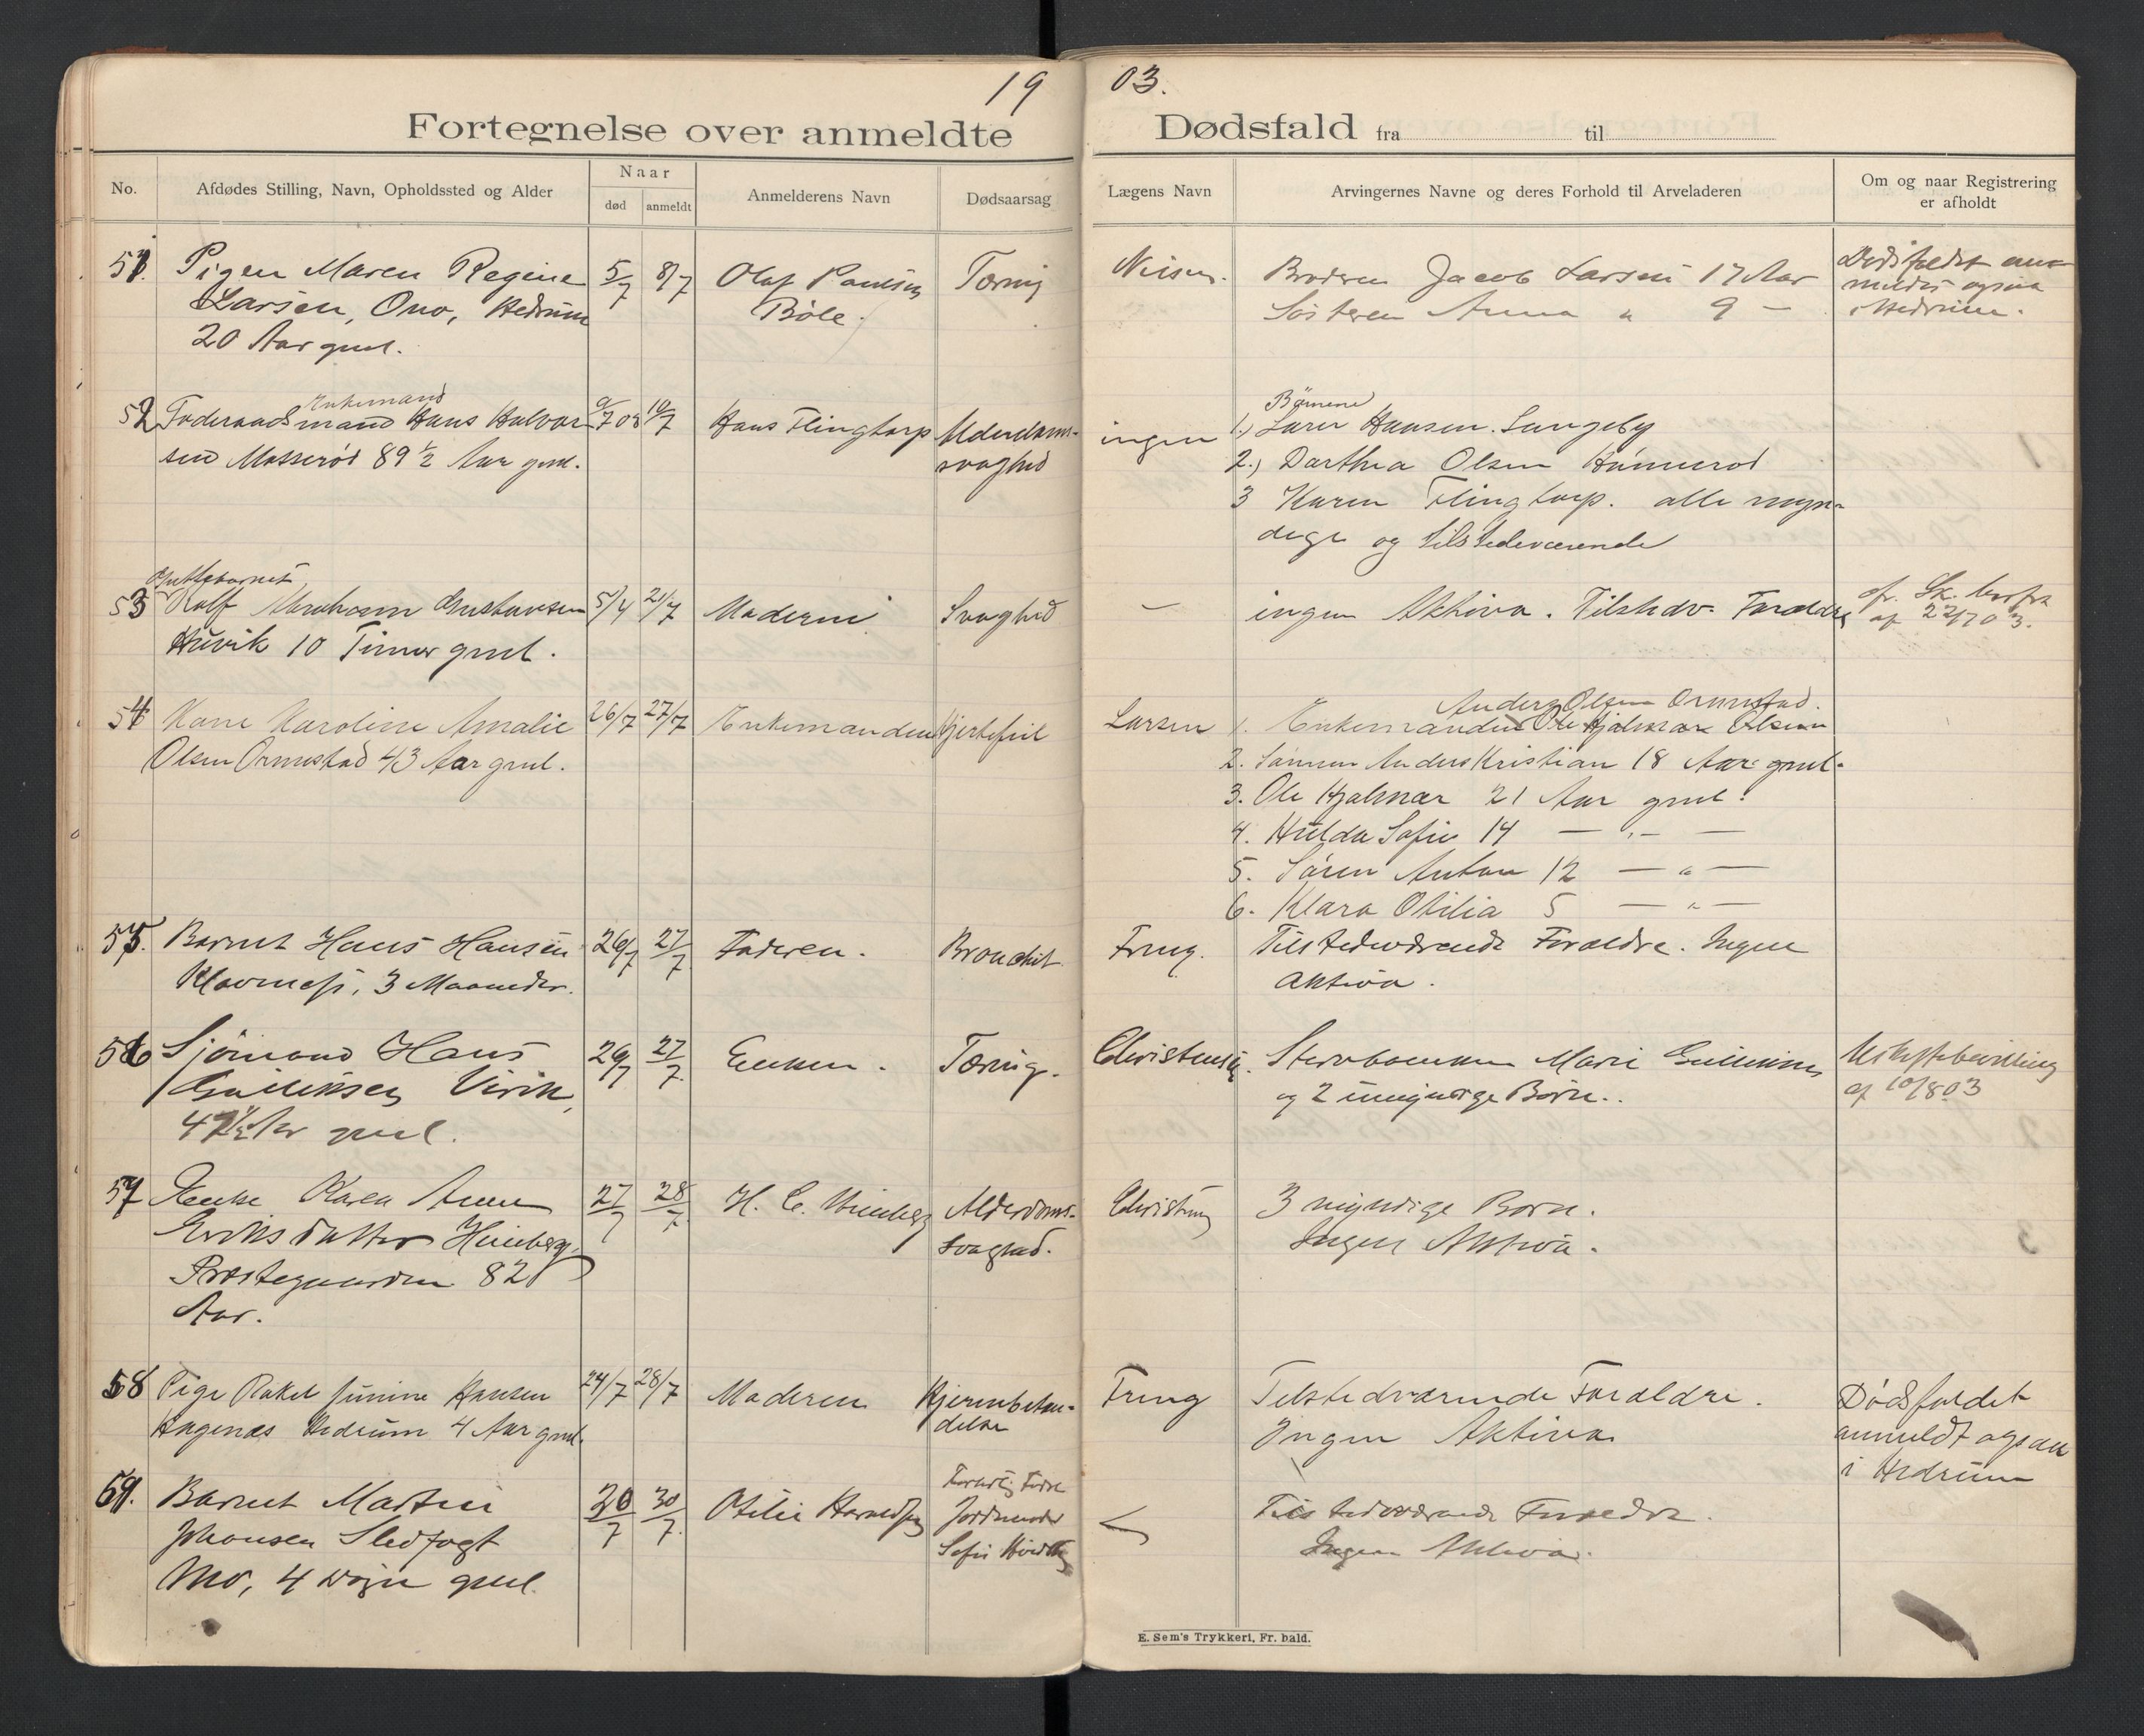 1903.
Fortegnelse over anmeldte Dødsfald fra til
No.
Afdødes Stilling, Navn, Opholdssted og Alder
Naar
død
anmeldt
Anmelderens Navn
Dødsaarsag
Lægens Navn
Arvingernes Navne og deres Forhold til Arveladeren
Om og naar Registrering
er afholdt
51. Pigen Maren Regine 5/7 8/7 Olaf Paulsen Tæring
Larsen, Ono, Hedrum Böle.
20 Aar gml.
Broderen Jacob Larsen 17 Aar
Søsteren Anna " 9 —
Dødsfaldet an-
meldes ogsaa
i Hedrum.
Enkemand
52 Føderaadsmand Hans Halvor- 9/7 03 10/7 Hans Flingtorp Alderdoms-
sen Masserød 89 1/2 Aar gml. svaghed
ingen
Børnene
1.) Hansen. Lungeby
2.) Dorthea Olsen
3 Karen Flingtorp. alle myn-
dige og tilstedeværende
Guttebarnet
53 Rolf Abraham Gustavsen 5/4 21/7 Moderen Svaghed
Huvik 10 Timer gml.
— ingen Aktiva. Tilstedv. Forældre
af 22/7 03.
54 Kone Karoline Amalie 26/7 27/7 Enkemanden Hjertefeil
Olsen Ormestad 43 Aar gml.
Larsen
Anders Olsen Ormestad.
1. Enkemanden Ole Hjalmar Olsen
2. Sønnen Anders Kristian 18 Aar gml.
3. Ole Hjalmar 21 Aar gml.
4. Hulda Sofie 14 — " —
5. Søren Anton 12 — " —
6. Klara Otilia 5 — " —
55. Barnet Hans Hansen 26/7 27/7 Faderen. Bronchit
Klavness, 3 Maaneder.
Tilstedeværende Forældre. Ingen
Aktiva.
56 Sjömand Hans 26/7 27/7 Enken. Tæring.
Gulliksen Virik,
47 1/2 Aar gml.
Christensen. Marie Gulliksen
og 2 umyndige Børn.
Uskiftebevilling
af 10/8 03
57 Enke Karen Anne 27/7 28/7 H. C. Alderdoms-
Eriksdatter svaghed.
Præstegaarden 82
Aar.
3 myndige Børn.
Ingen Aktiva.
58 Pige Rakel Hansen 24/7 28/7 Moderen Hjernebetæn-
Hagenæs Hedrum 4 Aar gml. delse
Tilstedværende Forældre.
Ingen Aktiva
Dødsfaldet
anmeldt ogsaa
i Hedrum
59. Barnet Martin 30/7 30/7 Otilie
Johansen Jordmoder
Mo, 4 Døgn gml. Sofie
Tilstedeværende Forældre.
Ingen Aktiva.
E. Sem's Trykkeri, Fr. hald.